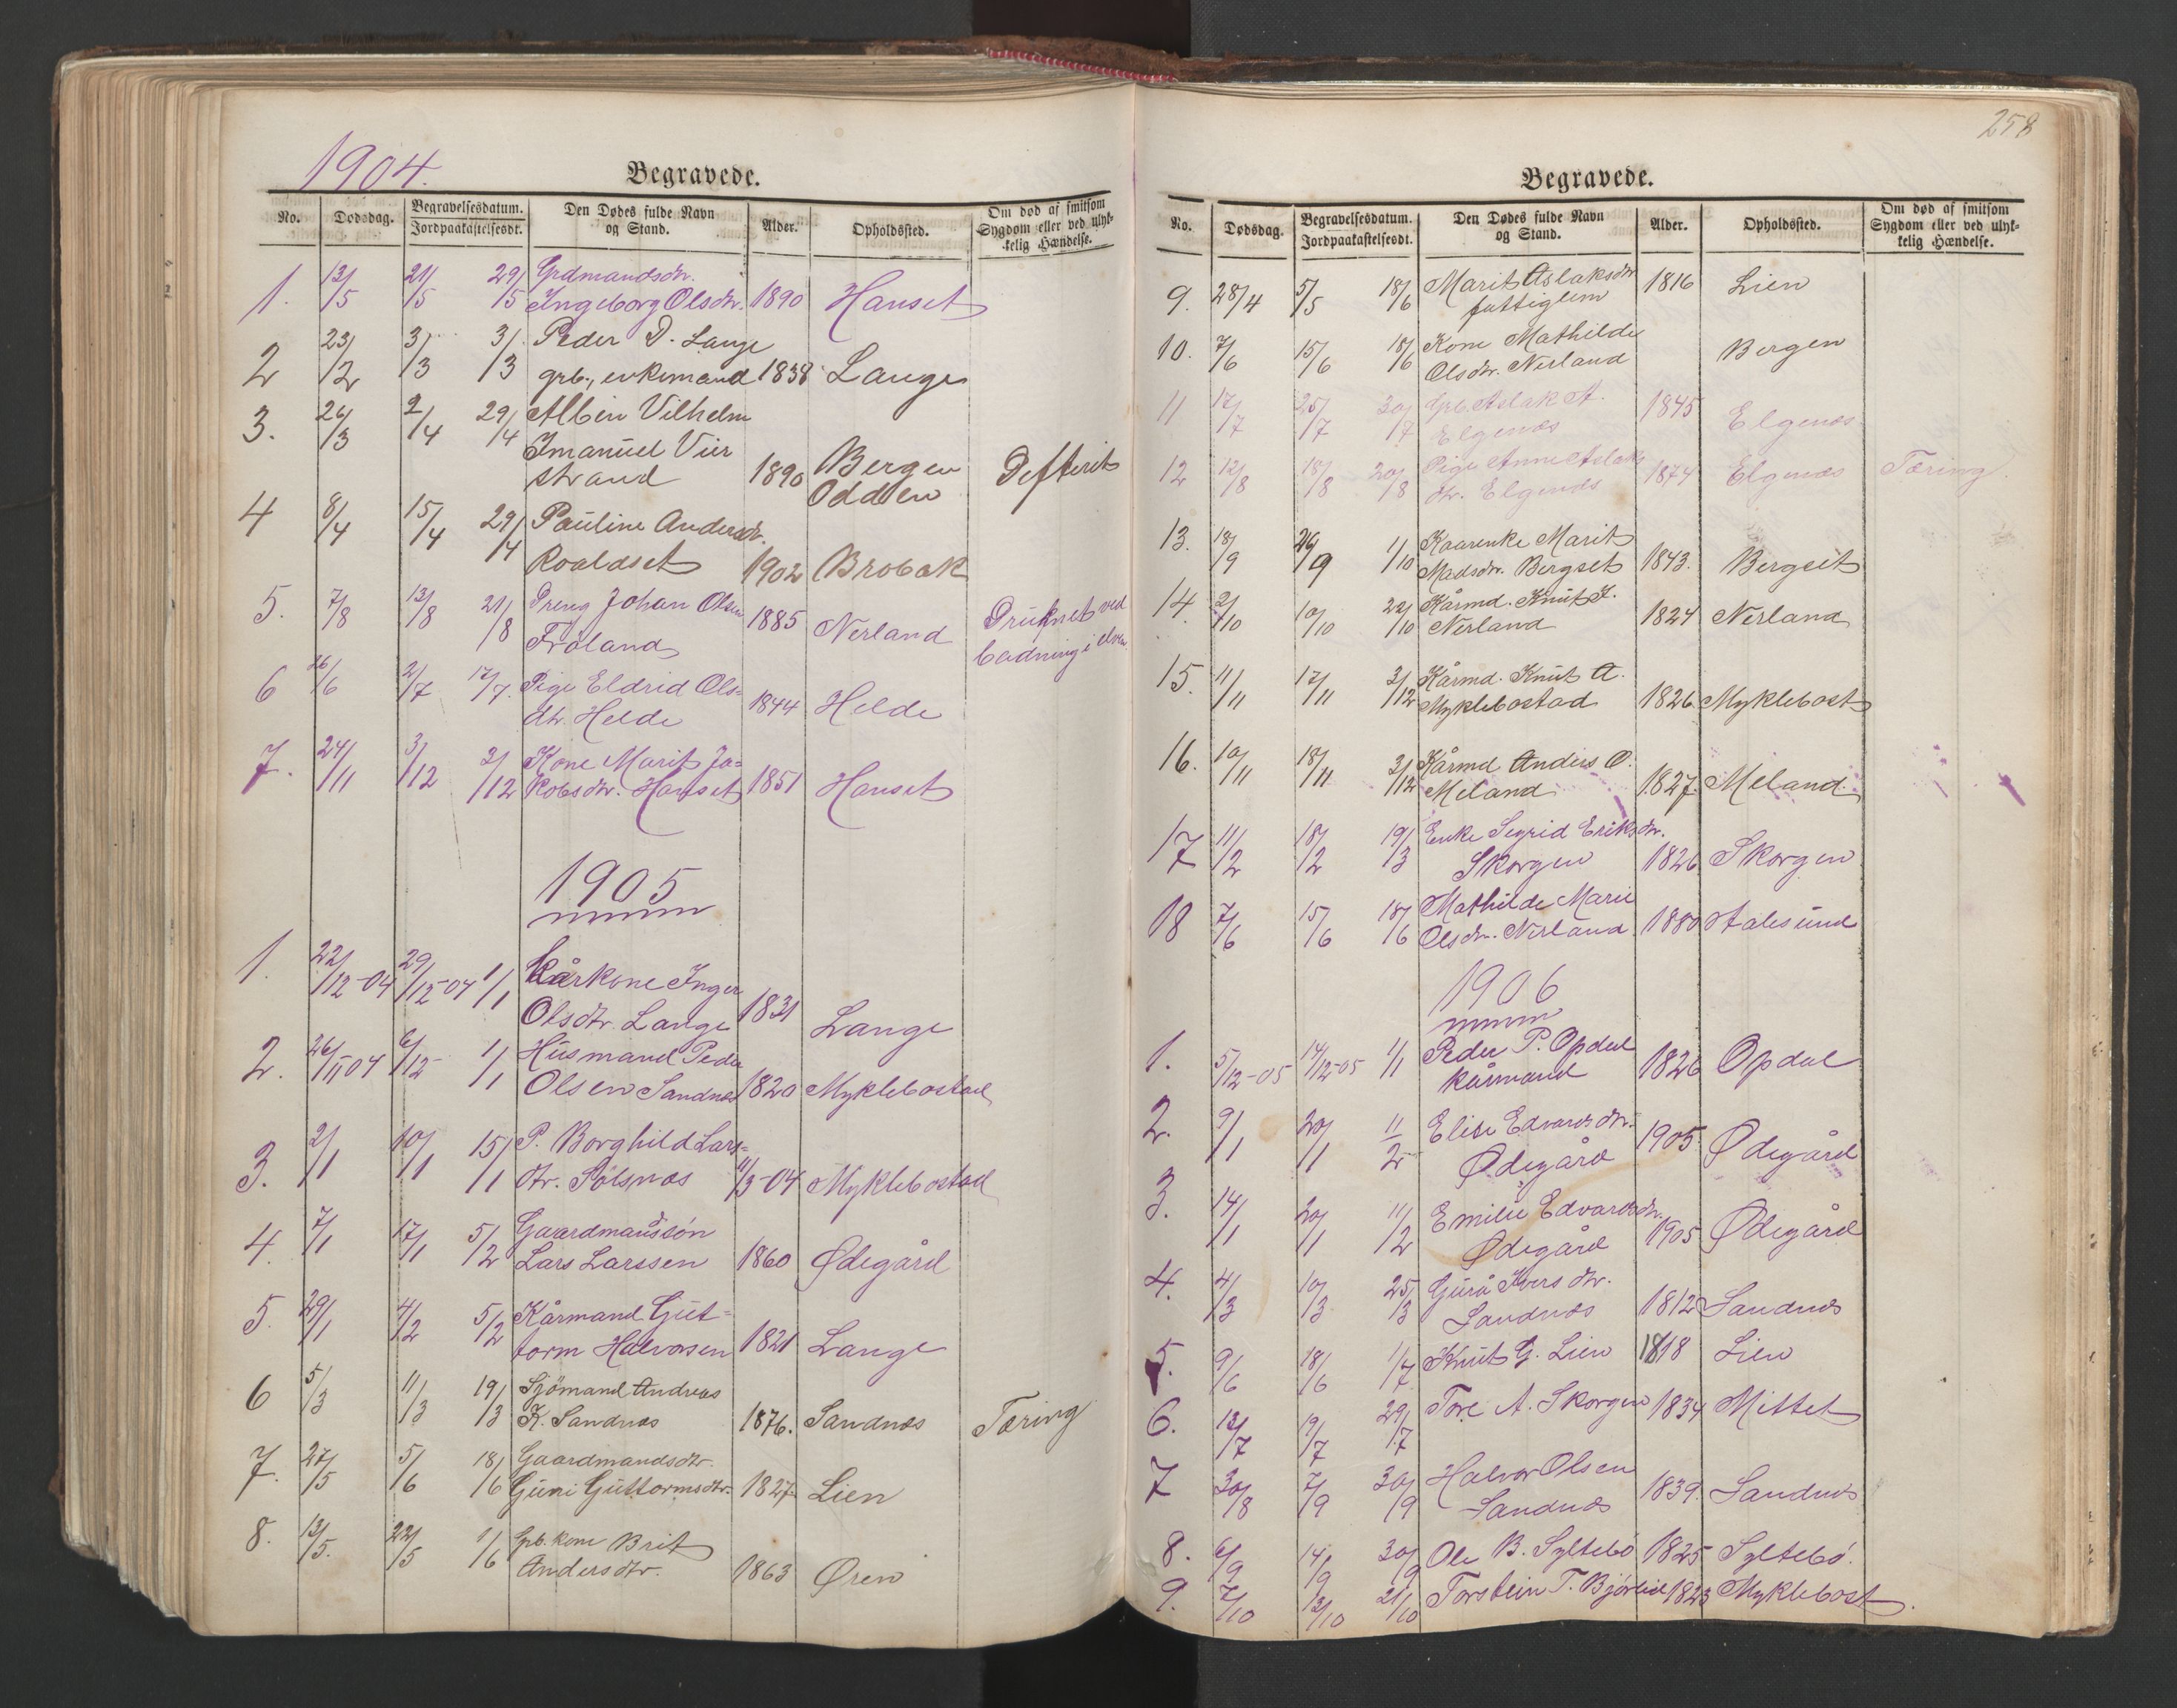 1904.
Begravede.
No. Dødsdag. Begravelsesdatum. Jordpaakastelsesdt. Den Dødes fulde Navn og Stand. Alder. Opholdssted. Om død af smitsom Sygdom eller ved ulykkelig Hændelse.
1. 13/5 21/5 29/5 Grdmandsdtr.
Ingeborg Olsdtr. 1890 Hanset
2 23/2 3/3 3/3 Peder D. Lange
grb., enkemand 1838 Lange
3. 26/3 2/4 29/4 Albin Vilhelm
Imanuel Vier
strand 1890 Bergen
Odden Defterit
4 8/4 15/4 29/4 Pauline Andersdtr.
Roaldset 1902 Brobak
5. 7/8 13/8 21/8 Dreng Johan Olsen
Fröland 1885 Nerland Druknet ved
badning i elven
6 26/6 2/7 17/7. Pige Eldrid Ols-
dtr. Helde 1844 Helde
7. 24/11 3/12 3/12 Kone Marit Ja-
kobsdtr. Hanset 1851 Hanset
1905
1. 22/12-04 29/12-04 1/1 Kårkone Inger
Olsdtr. Lange 1831 Lange
2. 26/11 04 6/12 1/1 Husmand Peder
Olsen Sandnes 1820 Myklebostad
3. 2/1 10/1 15/1 P. Borghild Lars-
dtr. Sölsnæs 11/3-04 Myklebostad
4. 7/1 17/1 5/2 Gaardmandssön
Lars Larssen 1860 Ødegård
5. 29/1 4/2 5/2 Kårmand Gut-
torm Halvorsen 1821 Lange
6 5/3 11/3 19/3 Sjömand Andreas
K. Sandnæs 1876. Sandnæs Tæring
7. 27/5 5/6 18/6 Gaardmandsdtr.
Guri Guttormsdtr. 1827 Lien
8. 13/5. 22/5 1/6 Grb. kone Brit
Andersdtr. 1863 Øren
258
Begravede.
No. Dødsdag. Begravelsesdatum. Jordpaakastelsesdt. Den Dødes fulde Navn og Stand. Alder. Opholdssted. Om død af smitsom Sygdom eller ved ulykkelig Hændelse.
9. 28/4 5/5 18/6 Marit Aslaksdtr
fattiglem 1816 Lien
10. 7/6 15/6 18/6 Kone Mathilde
Olsdtr. Nerland Bergen
11 17/7 25/7 30/7 Grb. Aslak A.
Elgenæs 1845 Elgenæs
12 12/8 18/8 20/8 Pige Anne Aslaks
dtr. Elgenæs 1874 Elgenæs Tæring
13. 18/9 26/9 1/10 Kaarenke Marit
Madsdtr. Bergset 1843. Bergset
14. 2/10 10/10 22/10 Kårmd. Knut K.
Nerland 1824 Nerland
15. 11/11 17/11 3/12 Kårmd. Knut A.
Myklebostad 1826 Myklebost
16. 10/11 18/11 3/12 Kårmd Anders O.
Meland 1827. Meland.
17 11/2 18/2 19/3 Enke Segrid Eriksdtr.
Skorgen 1826 Skorgen
18 7/6 15/6 18/6 Mathilde Marie
Olsdtr. Nerland 1880 Aalesund
1906
1. 5/12-05 14/12-05 1/1 Peder P. Opdal
kårmand 1826 Opdal
2. 9/1 20/1 11/2 Elise Edvardsdtr.
Ødegård 1905 Ødegård
3. 14/1 20/1 11/2 Emilie Edvardsdtr.
Ødegård 1905 Ødegård
4. 4/3 10/3 25/3 Gurå Iversdtr.
Sandnæs 1812 Sandnæs
5. 9/6 18/6 1/7 Knut G. Lien 1818 Lien
6. 13/7 19/7 29/7 Tore A. Skorgen 1834 Mittet
7 30/8 7/9 30/9 Halvor Olsen
Sandnæs 1839. Sandnæs
8. 6/9 14/9 30/9 Ole B. Syltebö 1825 Syltebö.
9. 7/10 13/10 21/10 Torstein T. Bjørlid 1823 Myklebost.